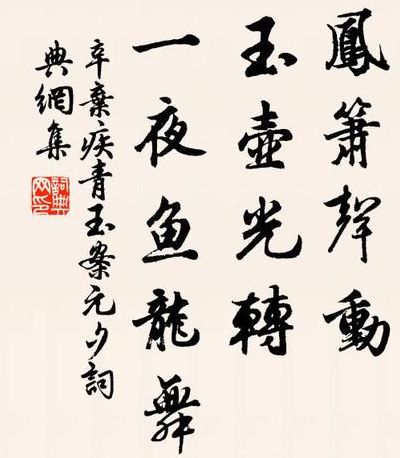 鳳簫聲動
玉壺光轉
一夜魚龍舞
辛棄疾青玉案元夕詞
典網集
詞典网印